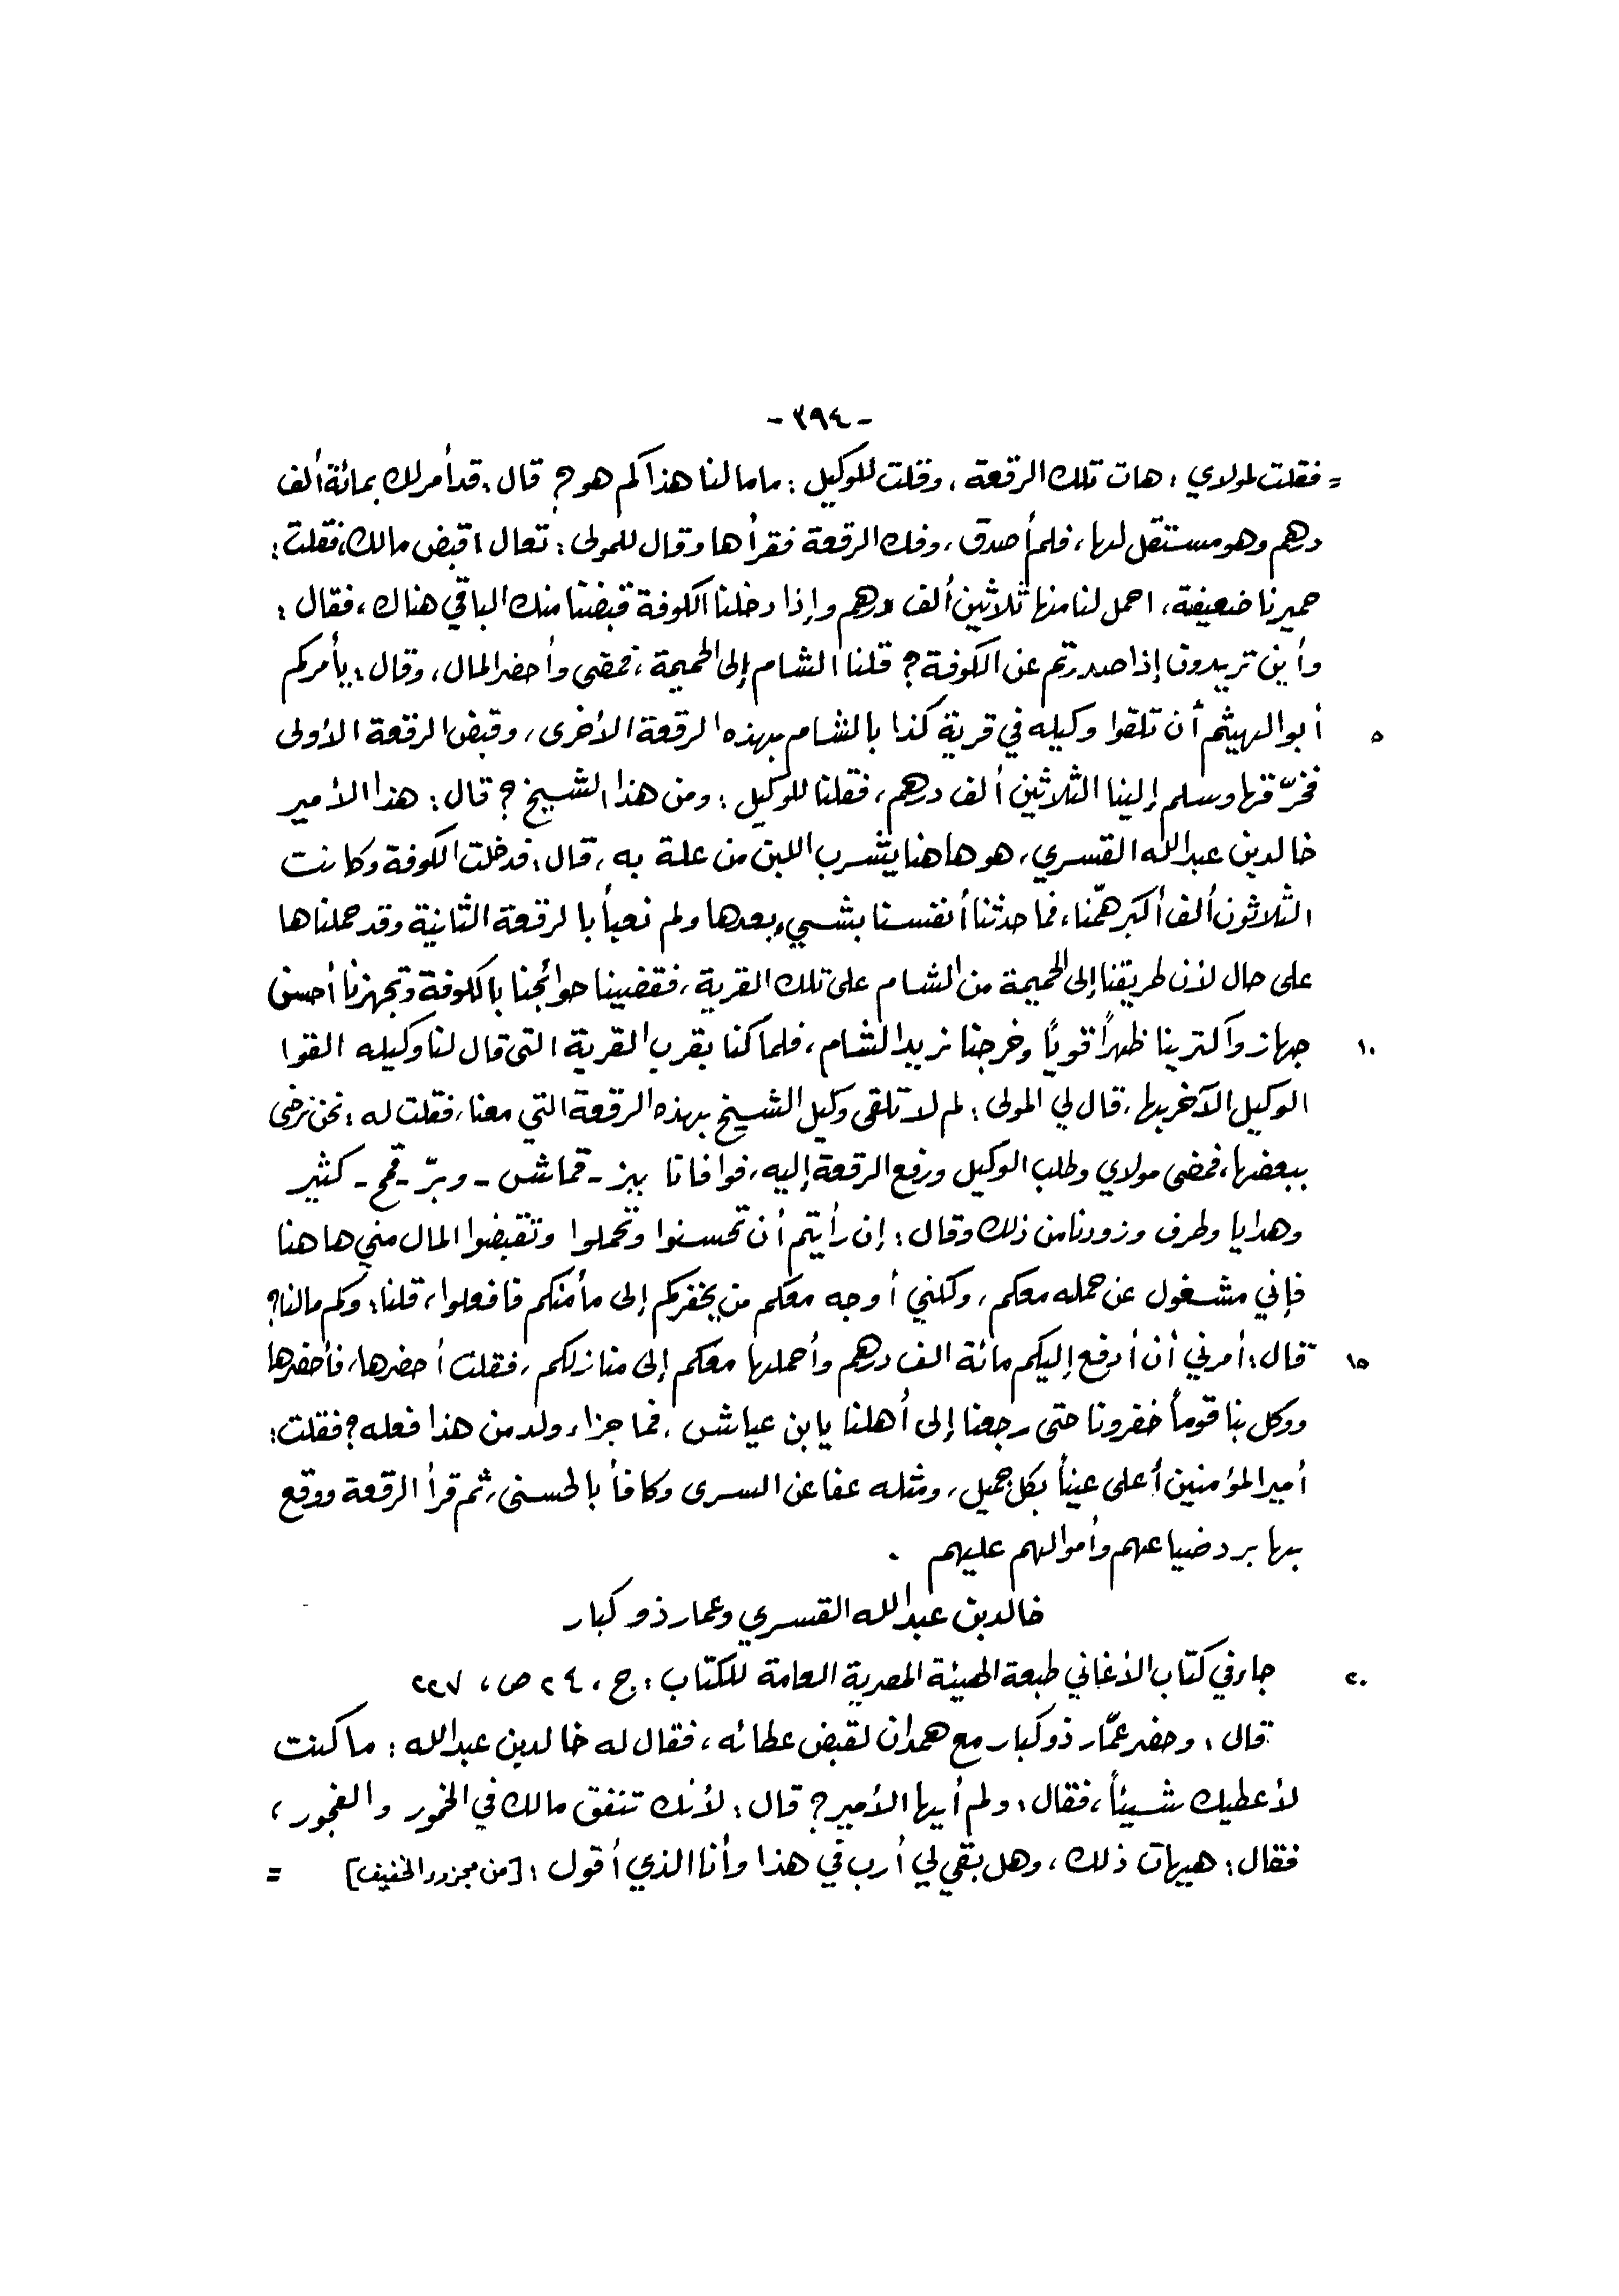 -٣٩٤-
= فقلت لمولاي : هات تلك الرقعة ، وقلت للوكيل : ما مالنا هذا كم هو ؟ قال : قد أمر لك بمائة ألف
درهم وهو مستقل لها ، فلم أصدق ، وفك الرقعة فقرأها وقال للمولى : تعال اقبض مالك ، فقلت :
حميرنا ضعيفة ، احمل لنا منها ثلاثين ألف درهم وإذا دخلنا الكوفة قبضنا منك الباقي هناك ، فقال :
وأين تريدون إذا صدرتم عن الكوفة ؟ قلنا الشام إلى الحميمة ، فمضى وأحضر المال ، وقال : يأمركم
٥ أبو الهيثم أن تلقوا وكيله في قرية كذا بالشام بهذه الرقعة الأخرى ، وقبض الرقعة الأولى
فخرّقها وسلم إلينا الثلاثين ألف درهم ، فقلنا للوكيل : ومن هذا الشيخ ؟ قال : هذا الأمير
خالد بن عبد الله القسري ، هو هاهنا يشرب اللبن من علة به ، قال : فدخلت الكوفة وكانت
الثلاثون ألف أكبر همّنا ، فما حدثنا أنفسنا بشيء بعدها ولم نعبأ بالرقعة الثانية وقد حملناها
على حال لأن طريقنا إلى الحميمة من الشام على تلك القرية ، فقضينا حوائجنا بالكوفة وتجهزنا أحسن
١٠ جهاز وآكترينا ظهراً قوياً وخرجنا نريد الشام ، فلما كنا بقرب القرية التي قال لنا وكيله القوا
الوكيل الآخر بها ، قال لي المولى : لم لا تلقى وكيل الشيخ بهذه الرقعة التي معنا ، فقلت له : نحن نرضى
ببعضها ، فمضى مولاي وطلب الوكيل ودفع الرقعة إليه ، فوافانا ببز - قماش - وبرّ - قمح - كثير
وهدايا وطرف وزودنا من ذلك وقال : إن رأيتم أن تحسنوا وتجملوا وتقبضوا المال مني هاهنا
فإني مشغول عن حمله معكم ، ولكني أوجه معكم من يخفركم إلى مأمنكم فافعلوا ، قلنا : وكم مالنا ؟
١٥ قال : أمرني أن أدفع إليكم مائة الف درهم وأحملها معكم إلى منازلكم ، فقلت أحضرها ، فأحضرها
ووكل بنا قوماً خفرونا حتى رجعنا إلى أهلنا يا بن عياش ، فما جزاء ولد من هذا فعله ؟ فقلت :
أمير المؤمنين أعلى عيناً بكل جميل ، ومثله عفا عن السرى وكافأ بالحسنى ، ثم قرأ الرقعة ووقع
بها برد ضياعهم وأموالهم عليهم .
خالد بن عبد الله القسري وعمار ذو كبار
٢٠ جاء في كتاب الأغاني طبعة الهيئة المصرية العامة للكتاب : ج ، ٢٤ ص ، ٢٢٧
قال : وحضر عمّار ذو كبار مع همدان لقبض عطائه ، فقال له خالد بن عبد الله : ما كنت
لأعطيك شيئاً ، فقال : ولم أيها الأمير ؟ قال : لأنك تنفق مالك في الخمور والفجور ،
فقال : هيهات ذلك ، وهل بقي لي أرب في هذا وأنا الذي أقول : [من مجزوء الخفيف] =